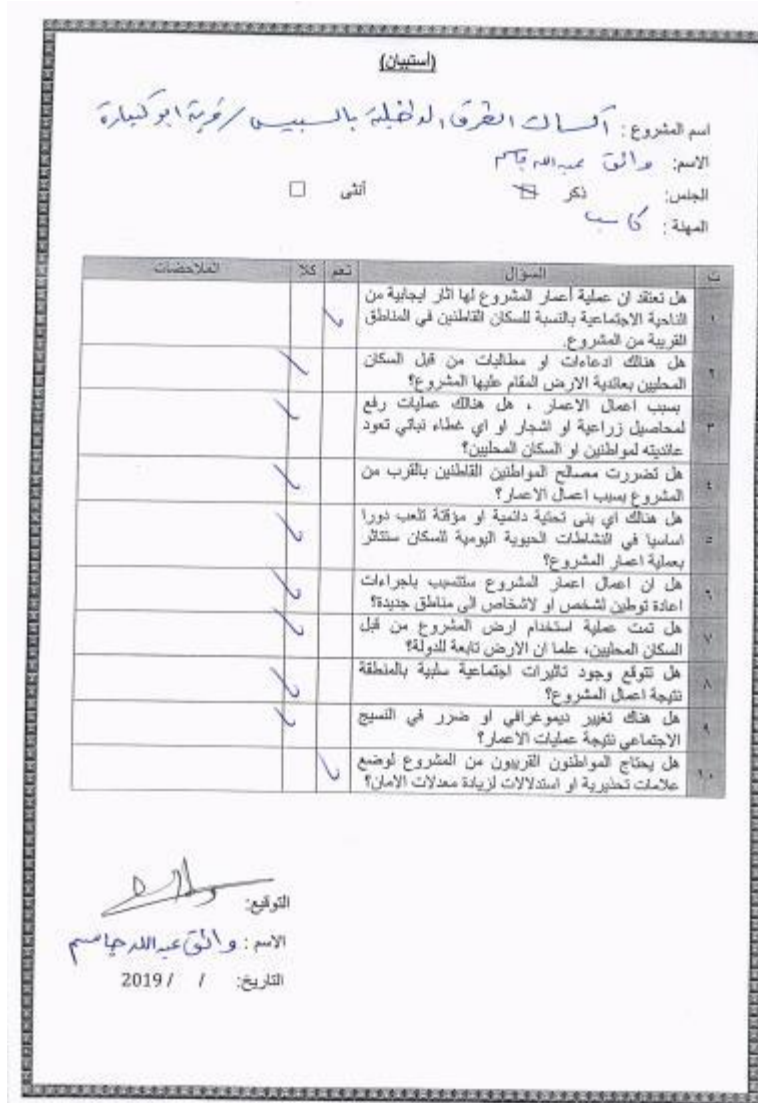 (أستبيان)
اسم المشروع: أكساء الطرق الداخلية بالسبيس / قرية ابو كبارة
الاسم: واثق عبدالله جاسم
الجنس: ذكر ☒ أنثى ☐
المهنة: كاسب
ت السؤال نعم كلا الملاحضات
١ هل تعتقد ان عملية أعمار المشروع لها اثار ايجابية من ✓
الناحية الاجتماعية بالنسبة للسكان القاطنين في المناطق
القريبة من المشروع.
٢ هل هنالك ادعاءات او مطالبات من قبل السكان ✓
المحليين بعائدية الارض المقام عليها المشروع؟
٣ بسبب اعمال الاعمار ، هل هنالك عمليات رفع ✓
لمحاصيل زراعية او اشجار او اي غطاء نباتي تعود
عائديته لمواطنين او السكان المحليين؟
٤ هل تضررت مصالح المواطنين القاطنين بالقرب من ✓
المشروع بسبب اعمال الاعمار؟
٥ هل هنالك اي بنى تحتية دائمية او مؤقتة تلعب دورا ✓
اساسيا في النشاطات الحيوية اليومية للسكان ستتاثر
بعملية اعمار المشروع؟
٦ هل ان اعمال اعمار المشروع ستتسبب باجراءات ✓
اعادة توطين لشخص او لاشخاص الى مناطق جديدة؟
٧ هل تمت عملية استخدام ارض المشروع من قبل ✓
السكان المحليين، علما ان الارض تابعة للدولة؟
٨ هل تتوقع وجود تاثيرات اجتماعية سلبية بالمنطقة ✓
نتيجة اعمال المشروع؟
٩ هل هناك تغيير ديموغرافي او ضرر في النسيج ✓
الاجتماعي نتيجة عمليات الاعمار؟
١٠ هل يحتاج المواطنون القريبون من المشروع لوضع ✓
علامات تحذيرية او استدلالات لزيادة معدلات الامان؟
التوقيع:
الاسم: واثق عبدالله جاسم
التاريخ: / / 2019